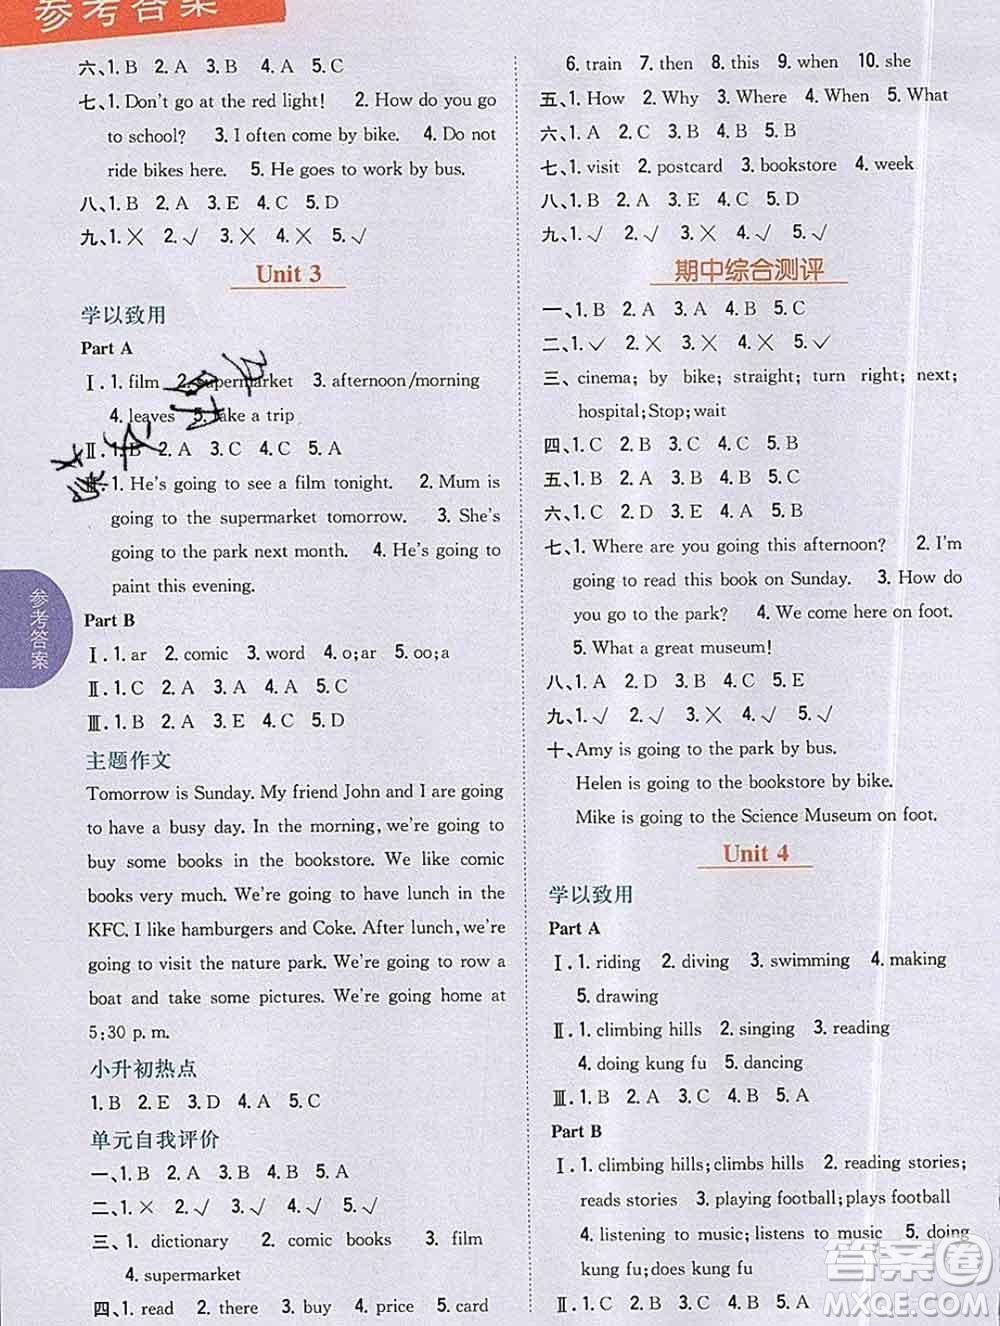 参考答案
六、1. B 2. A 3. B 4. A 5. C
七、1. Don't go at the red light! 2. How do you go
to school? 3. I often come by bike. 4. Do not
ride bikes here. 5. He goes to work by bus.
八、1. B 2. A 3. E 4. C 5. D
九、1. ✗ 2. ✓ 3. ✗ 4. ✗ 5. ✓
Unit 3
学以致用
Part A
Ⅰ. 1. film 2. supermarket 3. afternoon/morning
4. leaves 5. take a trip
Ⅱ. 1. B 2. A 3. C 4. B 5. A
Ⅲ. 1. He's going to see a film tonight. 2. Mum is
going to the supermarket tomorrow. 3. She's
going to the park next month. 4. He's going to
paint this evening.
Part B
Ⅰ. 1. ar 2. comic 3. word 4. o;ar 5. oo;a
Ⅱ. 1. C 2. A 3. A 4. B 5. A
Ⅲ. 1. B 2. A 3. E 4. C 5. D
主题作文
Tomorrow is Sunday. My friend John and I are going
to have a busy day. In the morning, we're going to
buy some books in the bookstore. We like comic
books very much. We're going to have lunch in the
KFC. I like hamburgers and Coke. After lunch, we're
going to visit the nature park. We're going to row a
boat and take some pictures. We're going home at
5:30 p. m.
小升初热点
1. B 2. E 3. D 4. A 5. C
单元自我评价
一、1. B 2. A 3. A 4. B 5. A
二、1. ✗ 2. ✓ 3. ✓ 4. ✗ 5. ✓
三、1. dictionary 2. comic books 3. film
4. supermarket
四、1. read 2. there 3. buy 4. price 5. card
6. train 7. then 8. this 9. when 10. she
五、1. How 2. Why 3. Where 4. When 5. What
六、1. A 2. C 3. B 4. A 5. B
七、1. visit 2. postcard 3. bookstore 4. week
八、1. B 2. A 3. E 4. C 5. D
九、1. ✓ 2. ✓ 3. ✗ 4. ✗ 5. ✓
期中综合测评
一、1. B 2. A 3. A 4. B 5. C
二、1. ✓ 2. ✗ 3. ✗ 4. ✗ 5. ✓
三、cinema; by bike; straight; turn right; next;
hospital;Stop;wait
四、1. C 2. B 3. A 4. C 5. B
五、1. B 2. C 3. A 4. B 5. C
六、1. C 2. B 3. A 4. C 5. B
七、1. Where are you going this afternoon? 2. I'm
going to read this book on Sunday. 3. How do
you go to the park? 4. We come here on foot.
5. What a great museum!
八、1. A 2. D 3. B 4. C 5. E
九、1. ✓ 2. ✓ 3. ✗ 4. ✓ 5. ✓
十、Amy is going to the park by bus.
Helen is going to the bookstore by bike.
Mike is going to the Science Museum on foot.
Unit 4
学以致用
Part A
Ⅰ. 1. riding 2. diving 3. swimming 4. making
5. drawing
Ⅱ. 1. climbing hills 2. singing 3. reading
4. doing kung fu 5. dancing
Ⅲ. 1. B 2. A 3. C 4. B 5. A
Part B
Ⅰ. 1. climbing hills;climbs hills 2. reading stories;
reads stories 3. playing football;plays football
4. listening to music;listens to music 5. doing
kung fu;does kung fu
Ⅱ. 1. C 2. B 3. A 4. B 5. A
参考答案
答案圈
MXQE.COM